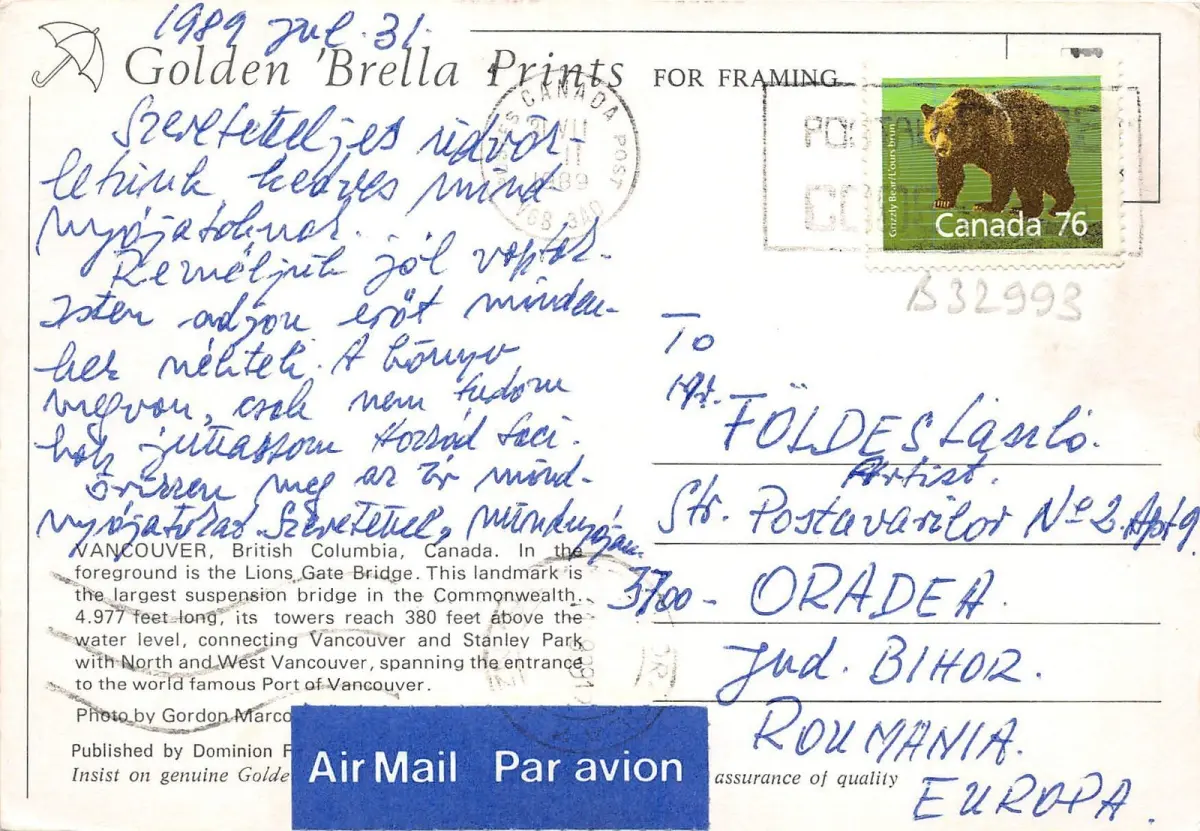 1989 Jul. 31.
Golden 'Brella Prints FOR FRAMING
CANADA POST
1989
Grizzly Bear/L'ours brun
Canada 76
B32993
Szeretetteljes üdvöz-
letünk kedves mind
nyájatoknak.
Reméljük jól vagytok.
Isten adjon erőt minden-
hez néktek. A könyv
megvan, csak nem tudom
hogy juttassam Hozzád Laci.
Őrizzen meg az Úr mind-
nyájatokat. Szeretettel,
To
Mr. FÖLDES László.
Artist.
Str. Postavarilor No 2. Apt 9.
3700- ORADEA.
Jud. BIHOR.
ROUMANIA.
EUROPA.
VANCOUVER, British Columbia, Canada. In the
foreground is the Lions Gate Bridge. This landmark is
the largest suspension bridge in the Commonwealth.
4.977 feet long, its towers reach 380 feet above the
water level, connecting Vancouver and Stanley Park
with North and West Vancouver, spanning the entrance
to the world famous Port of Vancouver.
Photo by Gordon Marco
Published by Dominion
Insist on genuine Golde
assurance of quality
Air Mail Par avion